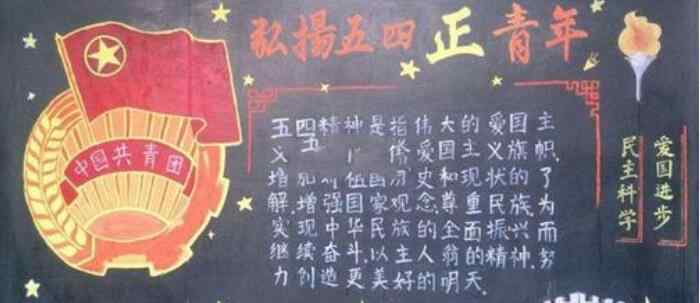 弘揚五四正青年
中国共青团
五四精神是指伟大的爱国主
义 五 爱国主义旗帜.
增 国 史和现状的了
解.增强国家观念.尊重民族.为
实现中华民族的全面振兴而
继续奋斗.以主人翁的精神.努
力创造更美好的明天.
爱国进步
民主科学